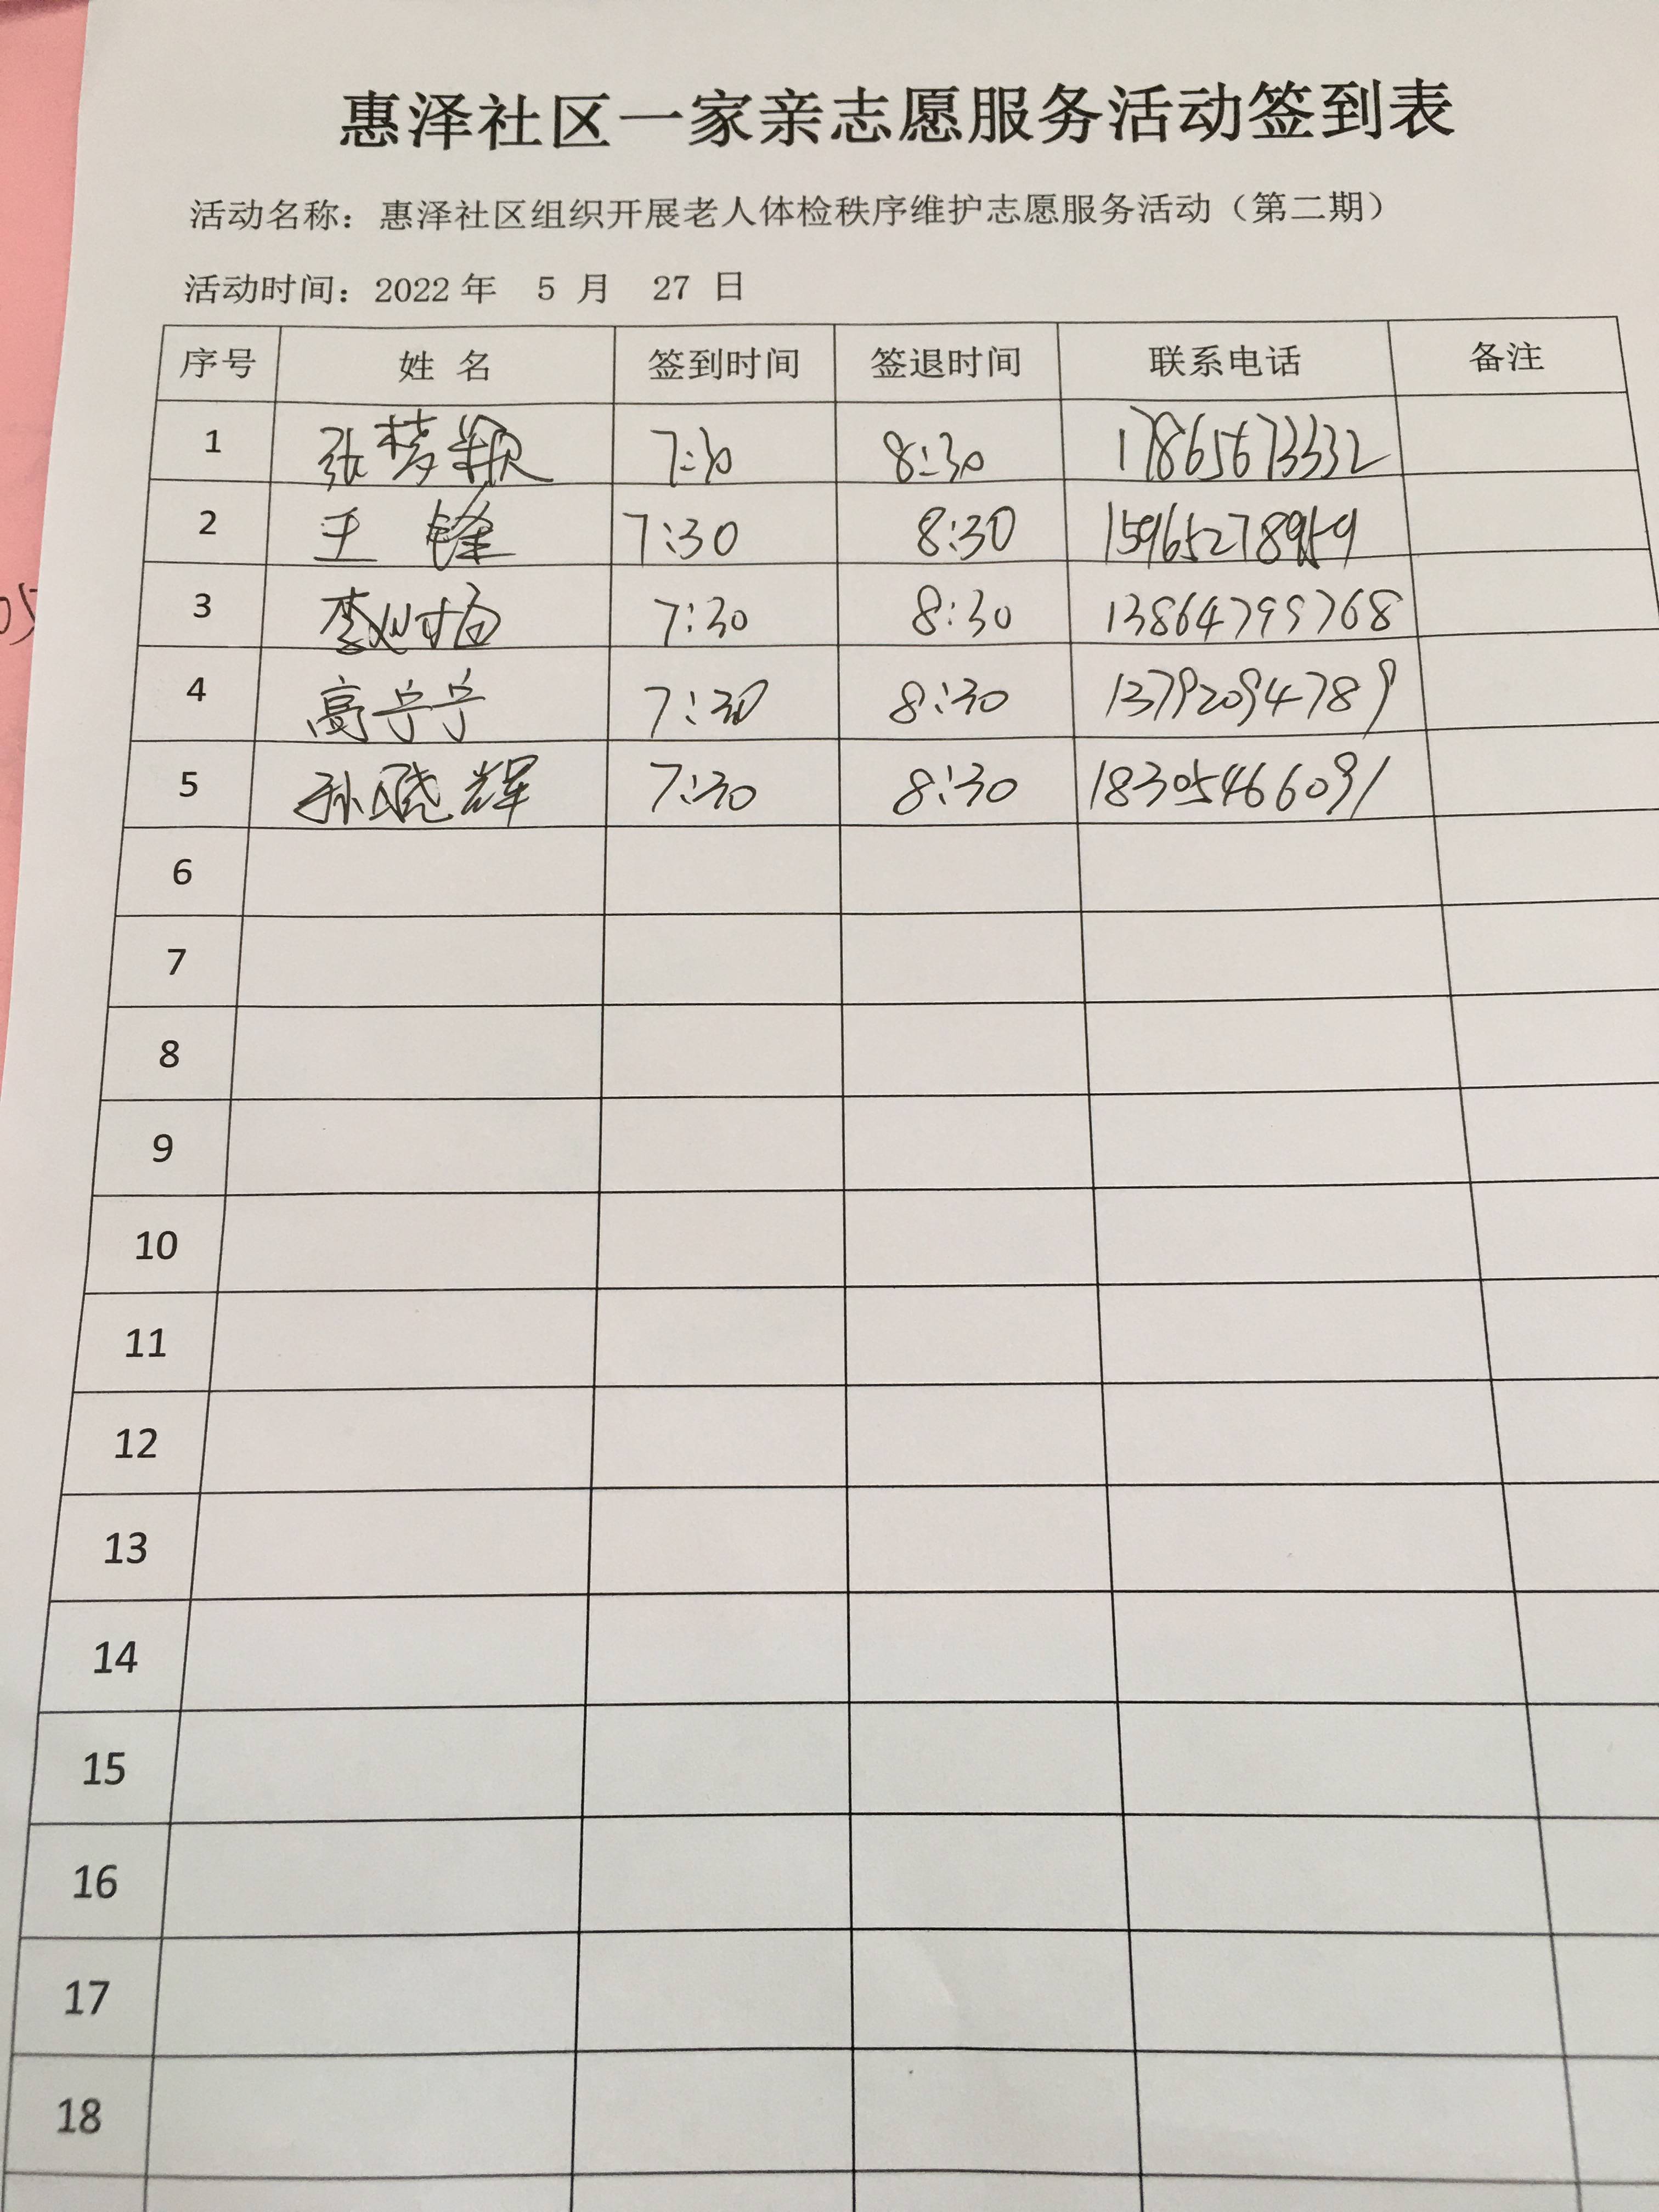 惠泽社区一家亲志愿服务活动签到表
活动名称：惠泽社区组织开展老人体检秩序维护志愿服务活动（第二期）
活动时间：2022 年 5 月 27 日
序号 姓 名 签到时间 签退时间 联系电话 备注
1 张梦颖 7:30 8:30 17865673332
2 王 锋 7:30 8:30
3 7:30 8:30 13864799768
4 高宁宁 7:30 8:30 13792094789
5 孙晓辉 7:30 8:30 18305466091
6
7
8
9
10
11
12
13
14
15
16
17
18